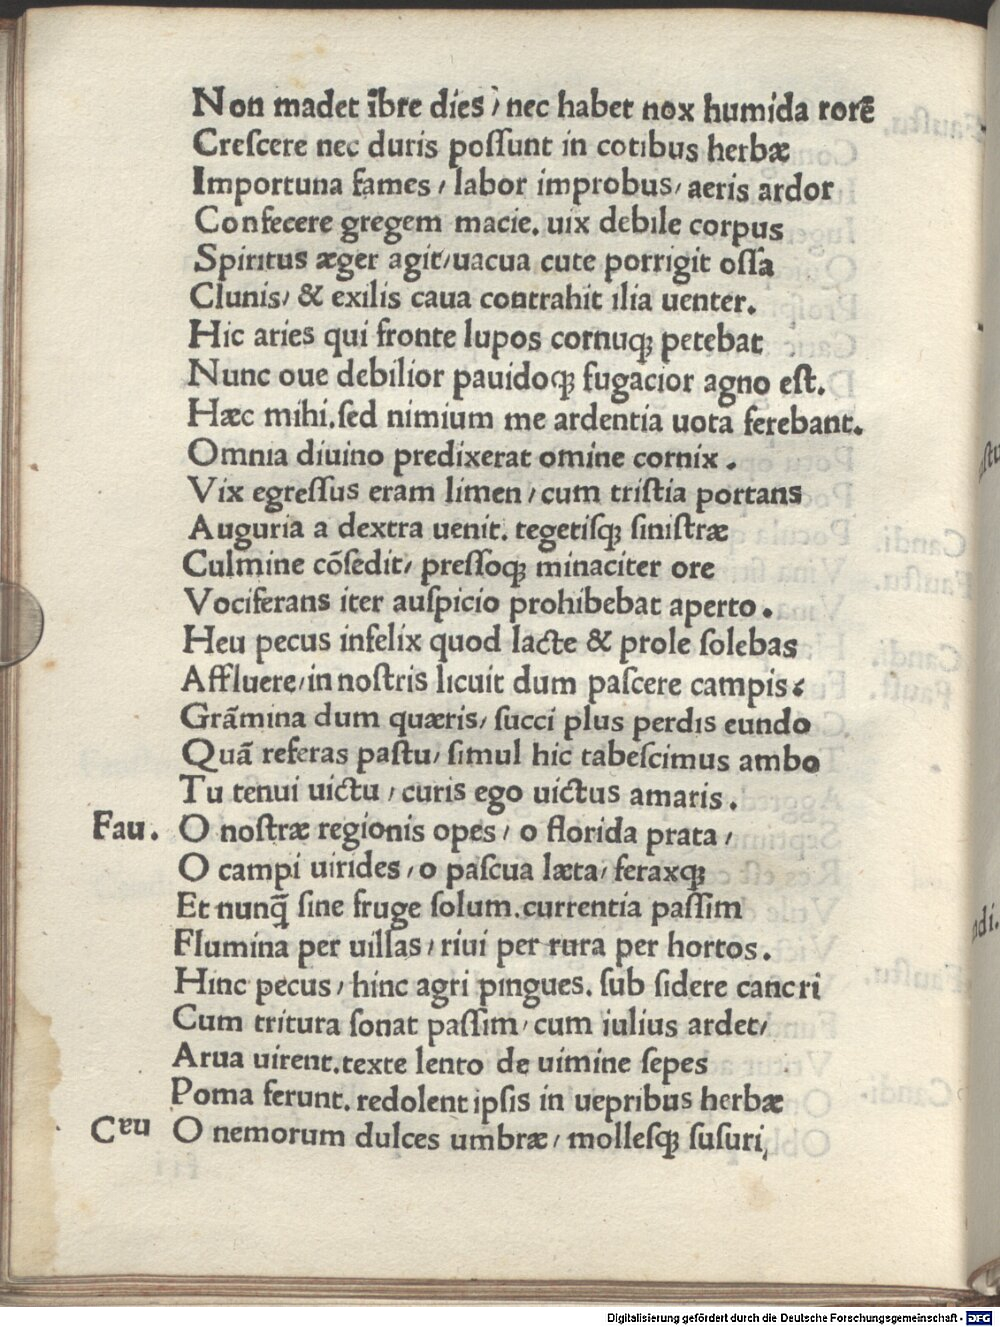 Non madet ībre dies / nec habet nox humida rorē
Creſcere nec duris poſſunt in cotibus herbæ
Importuna fames / labor improbus / aeris ardor
Confecere gregem macie. uix debile corpus
Spiritus æger agit / uacua cute porrigit oſſa
Clunis / & exilis caua contrahit ilia uenter.
Hic aries qui fronte lupos cornuqꝫ petebat
Nunc oue debilior pauidoqꝫ fugacior agno eſt.
Hæc mihi. ſed nimium me ardentia uota ferebant.
Omnia diuino predixerat omine cornix.
Vix egreſſus eram limen / cum triſtia portans
Auguria a dextra uenit. tegetiſqꝫ ſiniſtræ
Culmine cōſedit / preſſoqꝫ minaciter ore
Vociferans iter auſpicio prohibebat aperto.
Heu pecus infelix quod lacte & prole ſolebas
Affluere / in noſtris licuit dum paſcere campis:
Grāmina dum quæris / ſucci plus perdis eundo
Quā referas paſtu / ſimul hic tabeſcimus ambo
Tu tenui uictu / curis ego uictus amaris.
Fau. O noſtræ regionis opes / o florida prata /
O campi uirides / o paſcua læta / feraxqꝫ
Et nunq̄ ſine fruge ſolum. currentia paſſim
Flumina per uillas / riui per rura per hortos.
Hinc pecus / hinc agri pingues. ſub ſidere cancri
Cum tritura ſonat paſſim / cum iulius ardet /
Arua uirent. texte lento de uimine ſepes
Poma ferunt. redolent ipſis in uepribus herbæ
O nemorum dulces umbræ / molleſqꝫ ſuſuri,
Digitalisierung gefördert durch die Deutsche Forschungsgemeinschaft - DFG